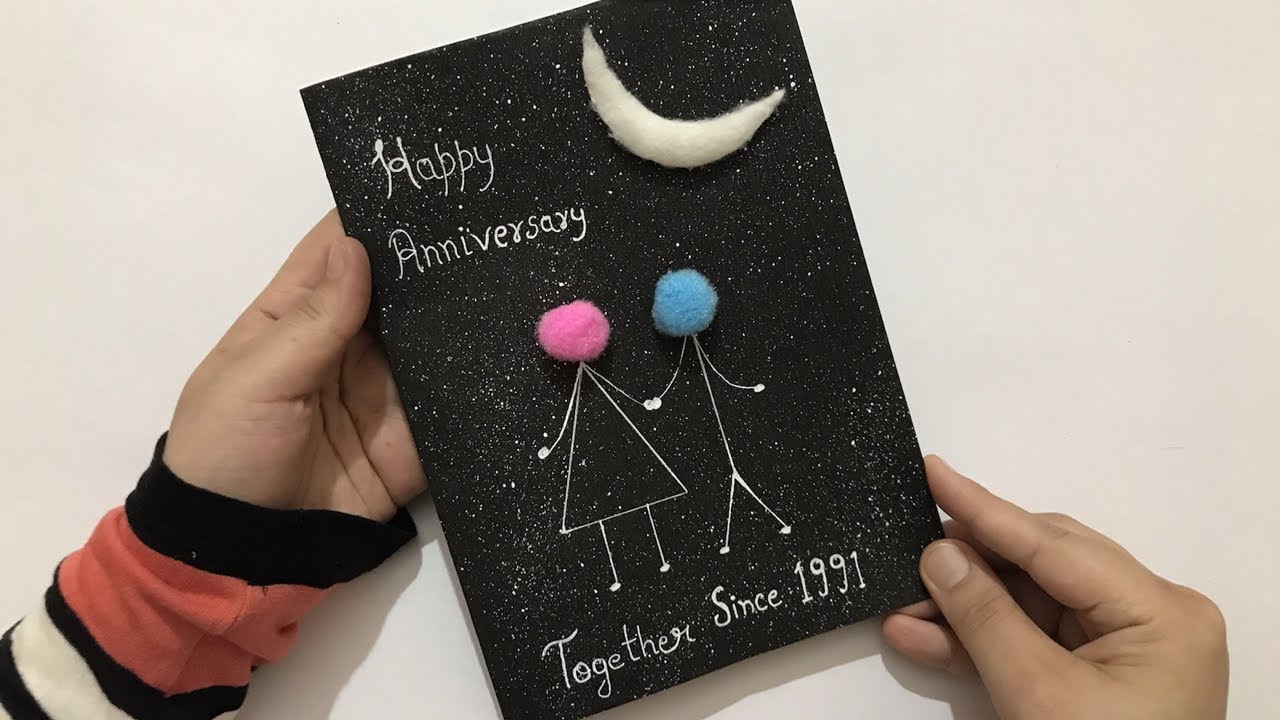 Happy
Anniversary
Together Since 1991